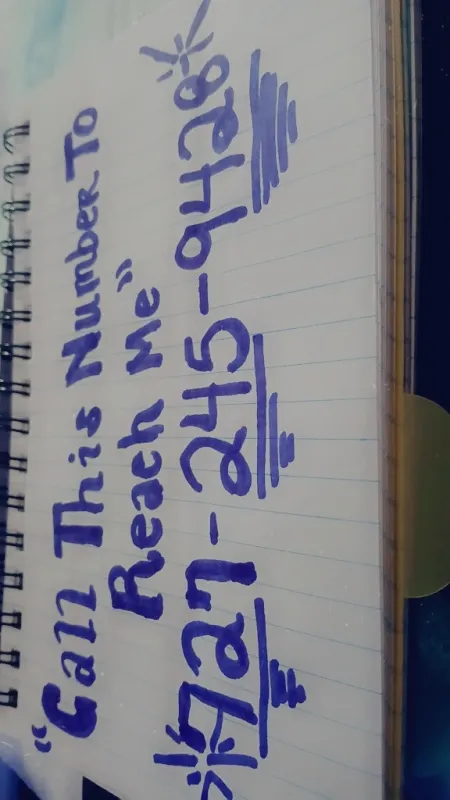 "Call This Number To
Reach Me"
727-245-9428